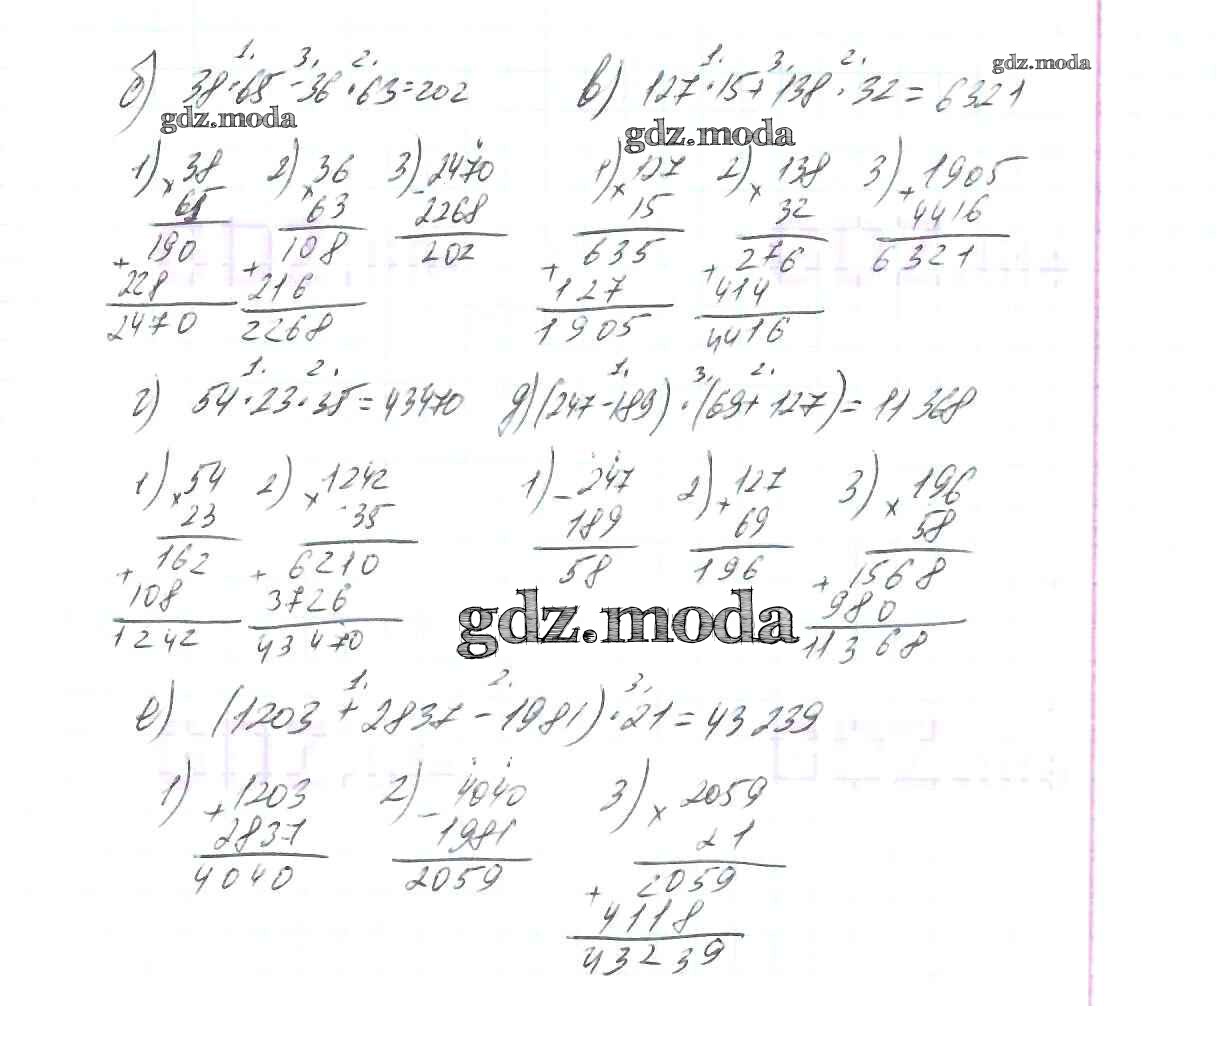 б) 38 · 65 - 36 · 63 = 202
1. 3. 2.
gdz.moda
1) × 38
65
+ 190
228
2470
2) × 36
63
+ 108
216
2268
3) - 2470
2268
202
в) 127 · 15 + 138 · 32 = 6321
1. 3. 2.
gdz.moda
gdz.moda
1) × 127
15
+ 635
127
1905
2) × 138
32
+ 276
414
4416
3) + 1905
4416
6321
г) 54 · 23 · 35 = 43470
1. 2.
1) × 54
23
+ 162
108
1242
2) × 1242
35
+ 6210
3726
43470
д) (247 - 189) · (69 + 127) = 11368
1. 3. 2.
1) - 247
189
58
2) + 127
69
196
3) × 196
58
+ 1568
980
11368
gdz.moda
е) (1203 + 2837 - 1981) · 21 = 43239
1. 2. 3.
1) + 1203
2837
4040
2) - 4040
1981
2059
3) × 2059
21
+ 2059
4118
43239